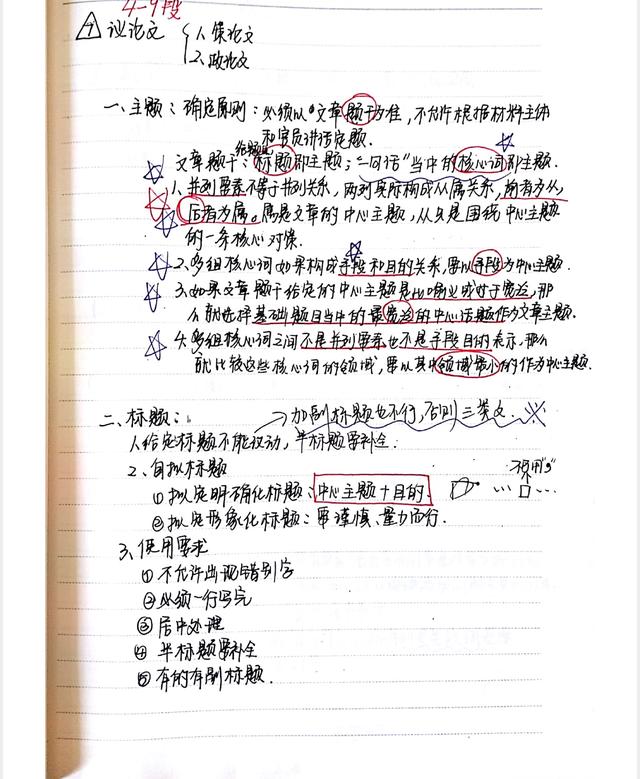 4-9段
7 议论文 { 1、策论文
2、政论文
一、主题：确定原则：必须以文章题干为准，不允许根据材料主体
和官员讲话定题.
给标题
文章题干：标题即主题；"一句话"当中的核心词即主题.
1、并列要素不等于并列关系，两列实际构成从属关系，前者为从，
后者为属。属是文章的中心主题，从只是围绕中心主题
的一条核心对策.
2、多组核心词如果构成手段和目的关系，要以手段为中心主题.
3、如果文章题干给定的中心主题是比喻义或过于宽泛，那
么就选择基础题目当中的最宽泛的中心话题作为文章主题.
4、多组核心词之间不是并列要素也不是手段目的表示，那么
就比较这些核心词的领域，要以其中领域最小的作为中心主题.
二、标题：→加副标题也不行，否则三类文.※
1、给定标题不能改动，半标题要补全.
2、自拟标题 不用"的"
①拟定明确化标题：中心主题+目的. …□…
②拟定形象化标题：要谨慎、量力而行.
3、使用要求
①不允许出现错别字
②必须一行写完
③居中处理
④半标题要补全
⑤有的有副标题.